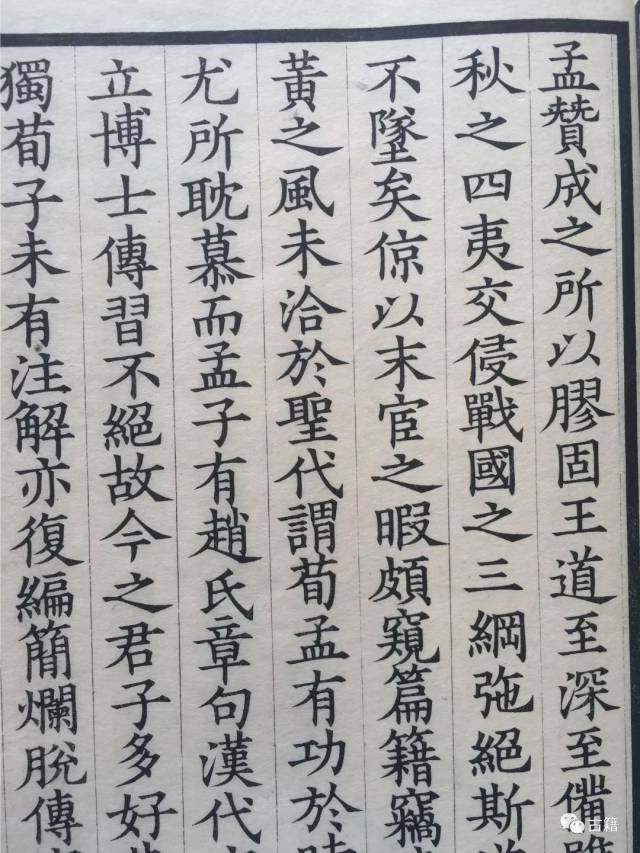 孟贊成之所以膠固王道至深至備
秋之四夷交侵戰國之三綱弛絕斯
不墜矣倞以末宦之暇頗窺篇籍竊
黃之風未洽於聖代謂荀孟有功於
尤所耽慕而孟子有趙氏章句漢代
立博士傳習不絕故今之君子多好
獨荀子未有注解亦復編簡爛脫傳
古籍